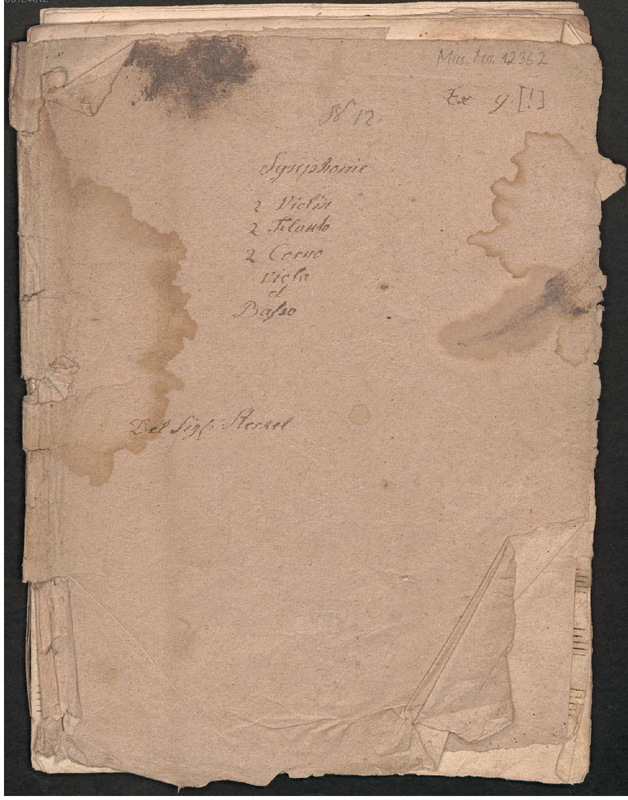 Mus. Ms. 12362
Ex 9 [!]
N 12.
Symphonie
2 Violin
2 Flauto
2 Corno
Viola
et
Basso
Del Sigl: Sterkel